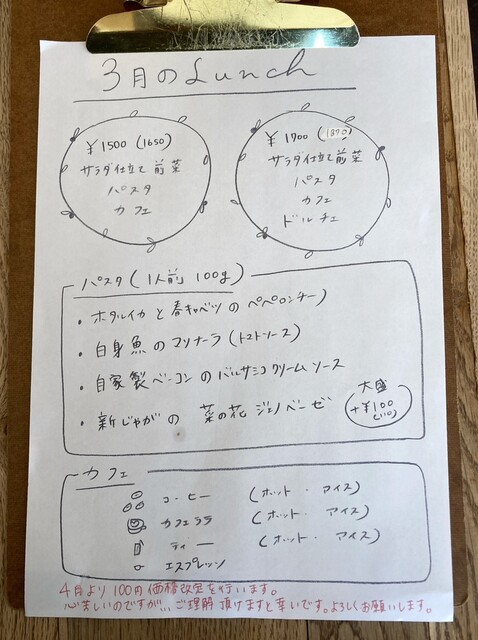 3月のLunch
¥1500 (1650)
サラダ仕立て前菜
パスタ
カフェ
¥1700 (1870)
サラダ仕立て前菜
パスタ
カフェ
ドルチェ
パスタ(1人前 100g)
・ホタルイカと春キャベツのペペロンチーノ
・白身魚のマリナーラ(トマトソース)
・自家製ベーコンのバルサミコクリームソース
・新じゃがの 菜の花ジェノベーゼ
大盛
+¥100
(110)
カフェ
コーヒー (ホット・アイス)
カフェラテ (ホット・アイス)
ティー (ホット・アイス)
エスプレッソ
4月より100円価格改定を行います。
心苦しいのですが... ご理解頂けますと幸いです。よろしくお願いします。